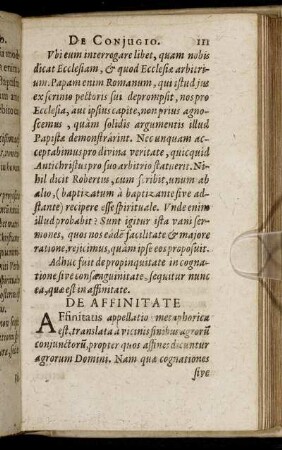 DE CONJUGIO. 111
Vbi eum interrogare libet, quam nobis
dicat Ecclesiam, & quod Ecclesiæ arbitri-
um. Papam enim Romanum, qui istud jus
ex scrinio pectoris sui depromsit, nos pro
Ecclesia, aut ipsius capite, non prius agno-
scemus, quàm solidis argumentis illud
Papistæ demonstrârint. Nec unquam ac-
ceptabimus pro divina veritate, quicquid
Antichristus pro suo arbitrio statuerit. Ni-
hil dicit Robertus, cum scribit, unum ab
alio, (baptizatum à baptizante sive ad-
stante) recipere esse spirituale. Vnde enim
illud probabit? Sunt igitur ista vani ser-
mones, quos nos eâdẽ facilitate & majore
ratione, rejicimus, quàm ipse eos proposuit.
Adhuc fuit de propinquitate in cogna-
tione sive consanguinitate, sequitur nunc
ea, quæ est in affinitate.
DE AFFINITATE
AFfinitatis appellatio metaphorica
est, translata à vicinis finibus agrorũ
conjunctorũ, propter quos affines dicuntur
agrorum Domini. Nam quæ cognationes
sive